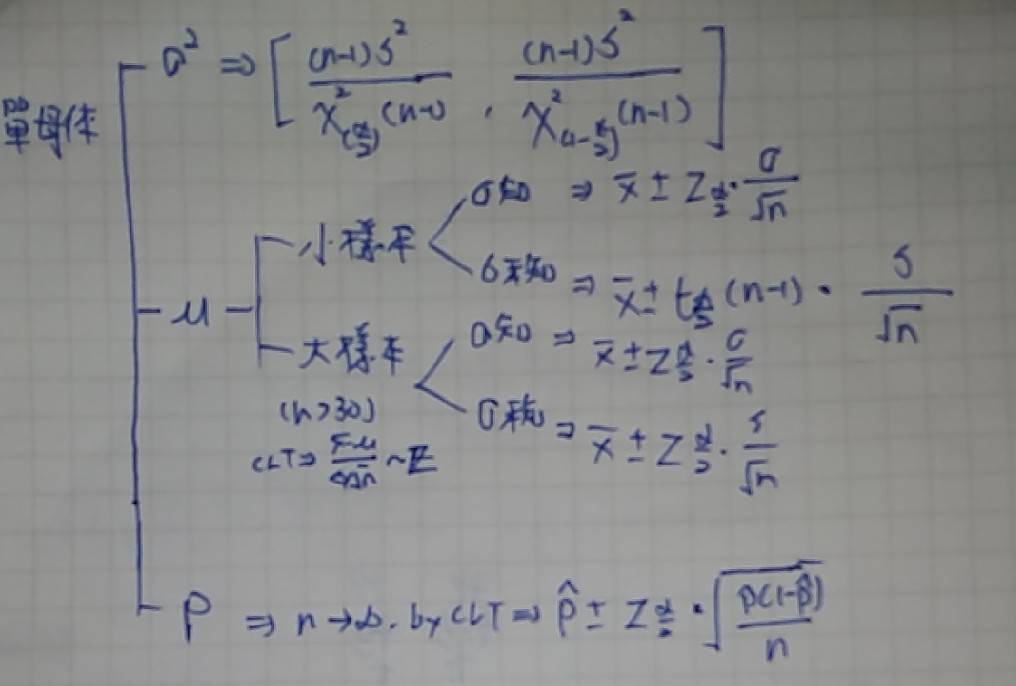 單母体
σ² ⇒ [ (n-1)S² / χ²(α/2)(n-1) , (n-1)S² / χ²(1-α/2)(n-1) ]
μ
小樣本
σ知 ⇒ x̄ ± Zα/2 · σ/√n
σ未知 ⇒ x̄ ± tα/2 (n-1) · S/√n
大樣本
(n>30)
CLT ⇒ x̄-μ / σ/√n ~ Z
σ知 ⇒ x̄ ± Zα/2 · σ/√n
σ未知 ⇒ x̄ ± Zα/2 · s/√n
P ⇒ n→∞. by CLT ⇒ p̂ ± Zα/2 · √(p̂(1-p̂)/n)